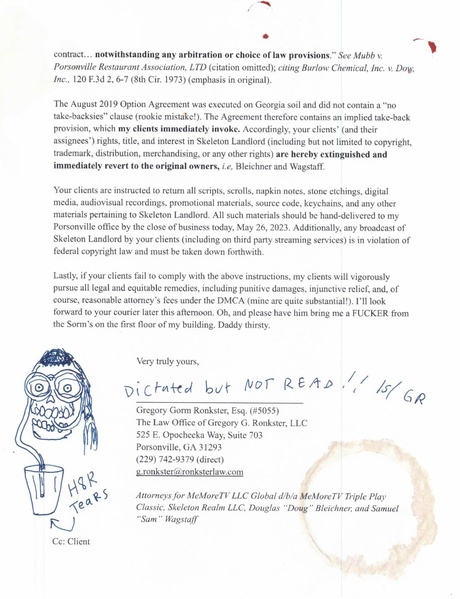 contract… notwithstanding any arbitration or choice of law provisions." See Mubb v.
Porsonville Restaurant Association, LTD (citation omitted); citing Burlow Chemical, Inc. v. Dow,
Inc., 120 F.3d 2, 6-7 (8th Cir. 1973) (emphasis in original).
The August 2019 Option Agreement was executed on Georgia soil and did not contain a "no
take-backsies" clause (rookie mistake!). The Agreement therefore contains an implied take-back
provision, which my clients immediately invoke. Accordingly, your clients' (and their
assignees') rights, title, and interest in Skeleton Landlord (including but not limited to copyright,
trademark, distribution, merchandising, or any other rights) are hereby extinguished and
immediately revert to the original owners, i.e, Bleichner and Wagstaff.
Your clients are instructed to return all scripts, scrolls, napkin notes, stone etchings, digital
media, audiovisual recordings, promotional materials, source code, keychains, and any other
materials pertaining to Skeleton Landlord. All such materials should be hand-delivered to my
Porsonville office by the close of business today, May 26, 2023. Additionally, any broadcast of
Skeleton Landlord by your clients (including on third party streaming services) is in violation of
federal copyright law and must be taken down forthwith.
Lastly, if your clients fail to comply with the above instructions, my clients will vigorously
pursue all legal and equitable remedies, including punitive damages, injunctive relief, and, of
course, reasonable attorney's fees under the DMCA (mine are quite substantial!). I'll look
forward to your courier later this afternoon. Oh, and please have him bring me a FUCKER from
the Sorm's on the first floor of my building. Daddy thirsty.
Very truly yours,
Dictated but NOT READ!! /s/ GR
Gregory Gorm Ronkster, Esq. (#5055)
The Law Office of Gregory G. Ronkster, LLC
525 E. Opocheeka Way, Suite 703
Porsonville, GA 31293
(229) 742-9379 (direct)
g.ronkster@ronksterlaw.com
H&R
Tears
Attorneys for MeMoreTV LLC Global d/b/a MeMoreTV Triple Play
Classic, Skeleton Realm LLC, Douglas "Doug" Bleichner, and Samuel
"Sam" Wagstaff
Cc: Client